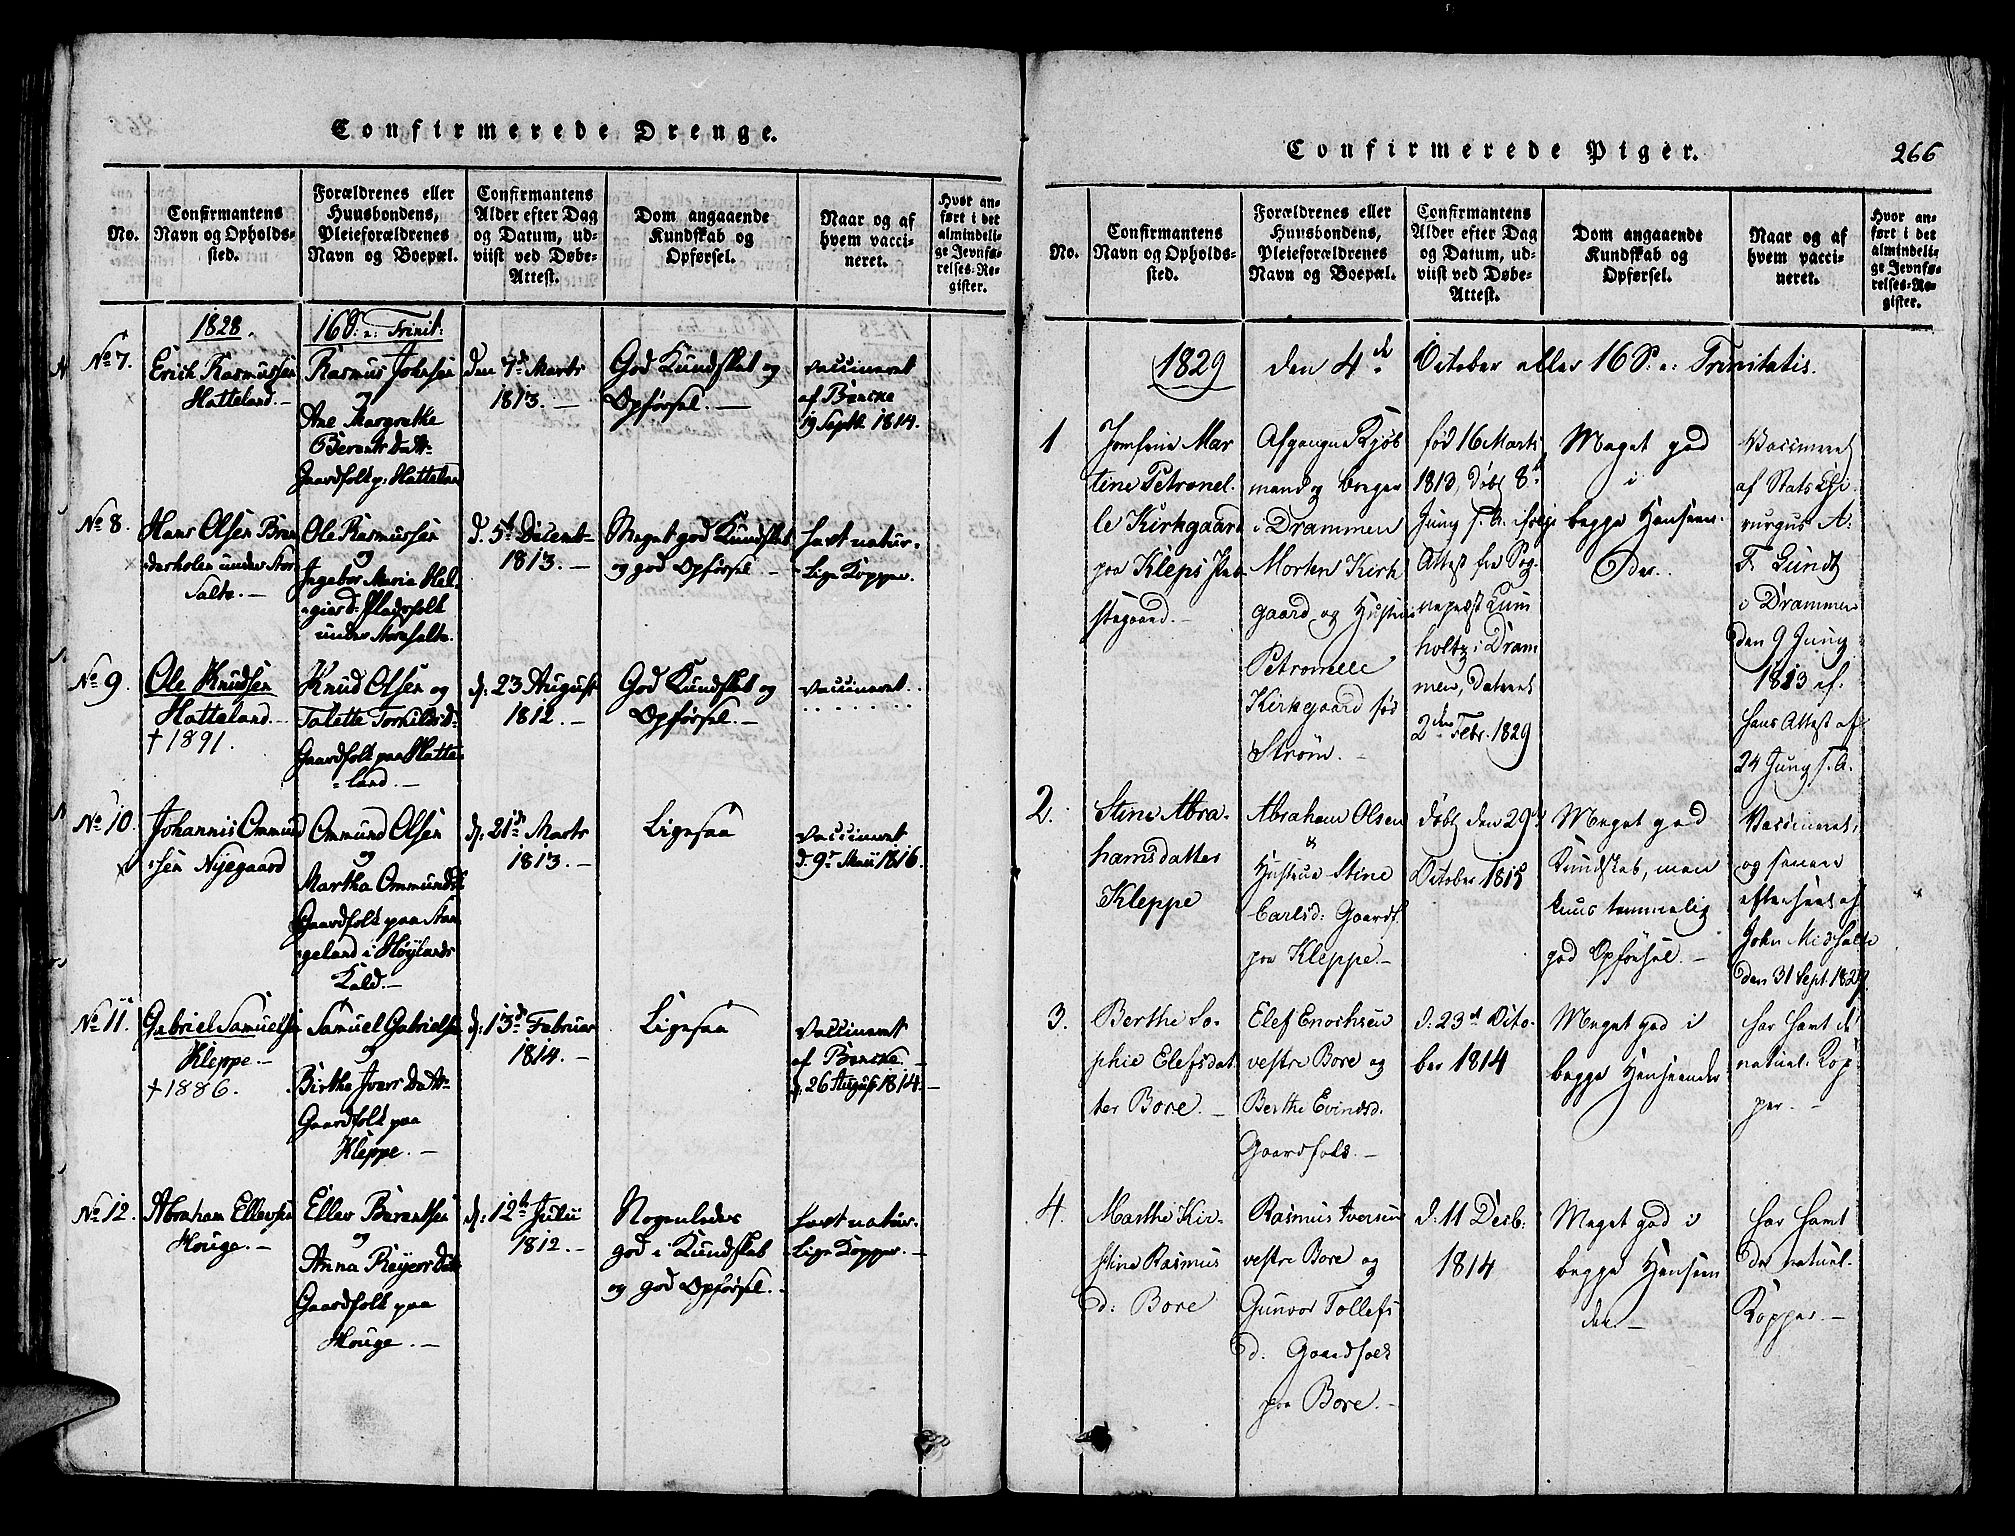 Confirmerede Drenge.
No.
Confirmantens
Navn og Opholds-
sted.
Forældrenes eller
Huusbondens,
Pleieforældrenes
Navn og Boepæl.
Confirmantens
Alder efter Dag
og Datum, ud-
viist ved Døbe-
Attest.
Dom angaaende
Kundskab og
Opførsel.
Naar og af
hvem vacci-
neret.
Hvor an-
ført i det
almindeli-
ge Jevnfø-
relses-Re-
gister.
1828.
16 S: a: Trinit:
No 7.
Erich Rasmussen
Hatteland.-
Rasmus Johnsen
og
Ane Margrethe
Berents Datt-
Gaardfolk p: Hatteland
den 7de Marts
1813.-
God Kundskab og
Opførsel.-
vaccineret
af Bencke
19 Septb. 1814.
No 8.
Hans Olsen Bran
derholen under Stor
Salte.-
Ole Rasmussen
og
Ingebor Maria Hel
giesd: Pladsfolk
under Storesalte.
d. 5t Decemb-
1813.-
Meget god Kundskab
og god Opførsel.-
havt natur-
lige Kopper.
No 9.
Ole Knudsen
Hatteland.-
† 1891.
Knud Olsen og
Talette Torkildsd-
Gaardfolk paa Hatte-
land.-
d: 23 August
1812.-
God Kundskab og
Opførsel.-
vaccineret.
No 10.
Johannis Ommund
sen Nyegaard
Ommund Olsen
og
Martha Ommundsd
Gaardfolk paa Stan
geland i Høylands
Kald.-
d: 21de Marts
1813.-
Ligesaa
vaccineret
d. 9de Maii 1816.
No 11.
Gabriel Samuelsen
Kleppe.-
† 1886.
Samuel Gabrielsen
og
Birthe Ivers Datt-
Gaardfolk paa
Kleppe.-
d: 13de Februar
1814.-
Ligesaa
vaccineret
af Bencke.
d. 26 August 1814.-
No 12.
Abraham Ellevsen
Houge.-
Ellev Berentsen
og
Anna Reyers Datt
Gaardfolk paa
Houge.-
d: 12te Julii
1812.-
Nogenledes
god i Kundskab
og god Opførsel.
havt natur-
lige Kopper.-
Confirmerede Piger.
266
No.
Confirmantens
Navn og Opholds-
sted.
Forældrenes eller
Huusbondens,
Pleieforældrenes
Navn og Boepæl.
Confirmantens
Alder efter Dag
og Datum, ud-
viist ved Døbe-
Attest.
Dom angaaende
Kundskab og
Opførsel.
Naar og af
hvem vacci-
neret.
Hvor an-
ført i det
almindeli-
ge Jevnfø-
relses-Re-
gister.
1829 den 4de October eller 16 S: a: Trinitatis.
1
Jomfrue Mar
tine Petronel-
le Kirkgaard
paa Kleps Præ
stegaard.-
Afgangne Kjøb
mand og borger
i Drammen
Morten Kirk
gaard og Hustrue
Petronelle
Kirkgaard fød
Strøm.-
fød 16 Marts
1813, døbt 8de
Juny s. A. ifølge
Attest fra Sog
nepræst Lum
holtz i Dram
men, dateret
2den Febr. 1829
Meget god
i
begge Henseen-
der.
Vaccineret
af Stats Chi
rurgus A.
F. Gundt
i Drammen
den 9 Juny
1813 ef.
hans Attest af
24 Juny s. A.
2.
Stine Abra-
hamsdatter
Kleppe
Abraham Olsen
&
Hustrue Stine
Carlsd: Gaardf.
paa Kleppe.-
døbt den 29de
October 1815
Meget god
Kundskab, men
kuns temmelig
god Opførsel.-
Vaccineret,
og senere
efterseet af
John Midsalte
den 31 Sept. 1829.
3.
Berthe So-
phie Elefsdat
ter Bore.-
Elef Enochsen
vestre Bore og
Berthe Evindsd.
Gaardfolk.-
d. 23de Octo-
ber 1814
Meget god i
begge Henseender
har havt de
naturl. Kop-
per.-
4.
Marthe Kir-
stine Rasmus
d: Bore
Rasmus Iversen
vestre Bore og
Gunvor Tollefs
d. Gaardfolk
paa Bore.-
d. 11 Decb:
1814
Meget god i
begge Henseen
der.-
har havt
de naturl.
Kopper.-